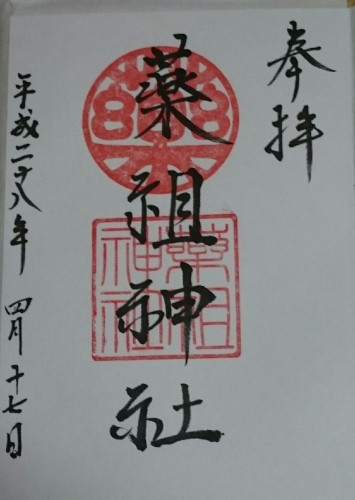 奉拝
薬祖神社
薬祖
神社
平成二十八年 四月十七日